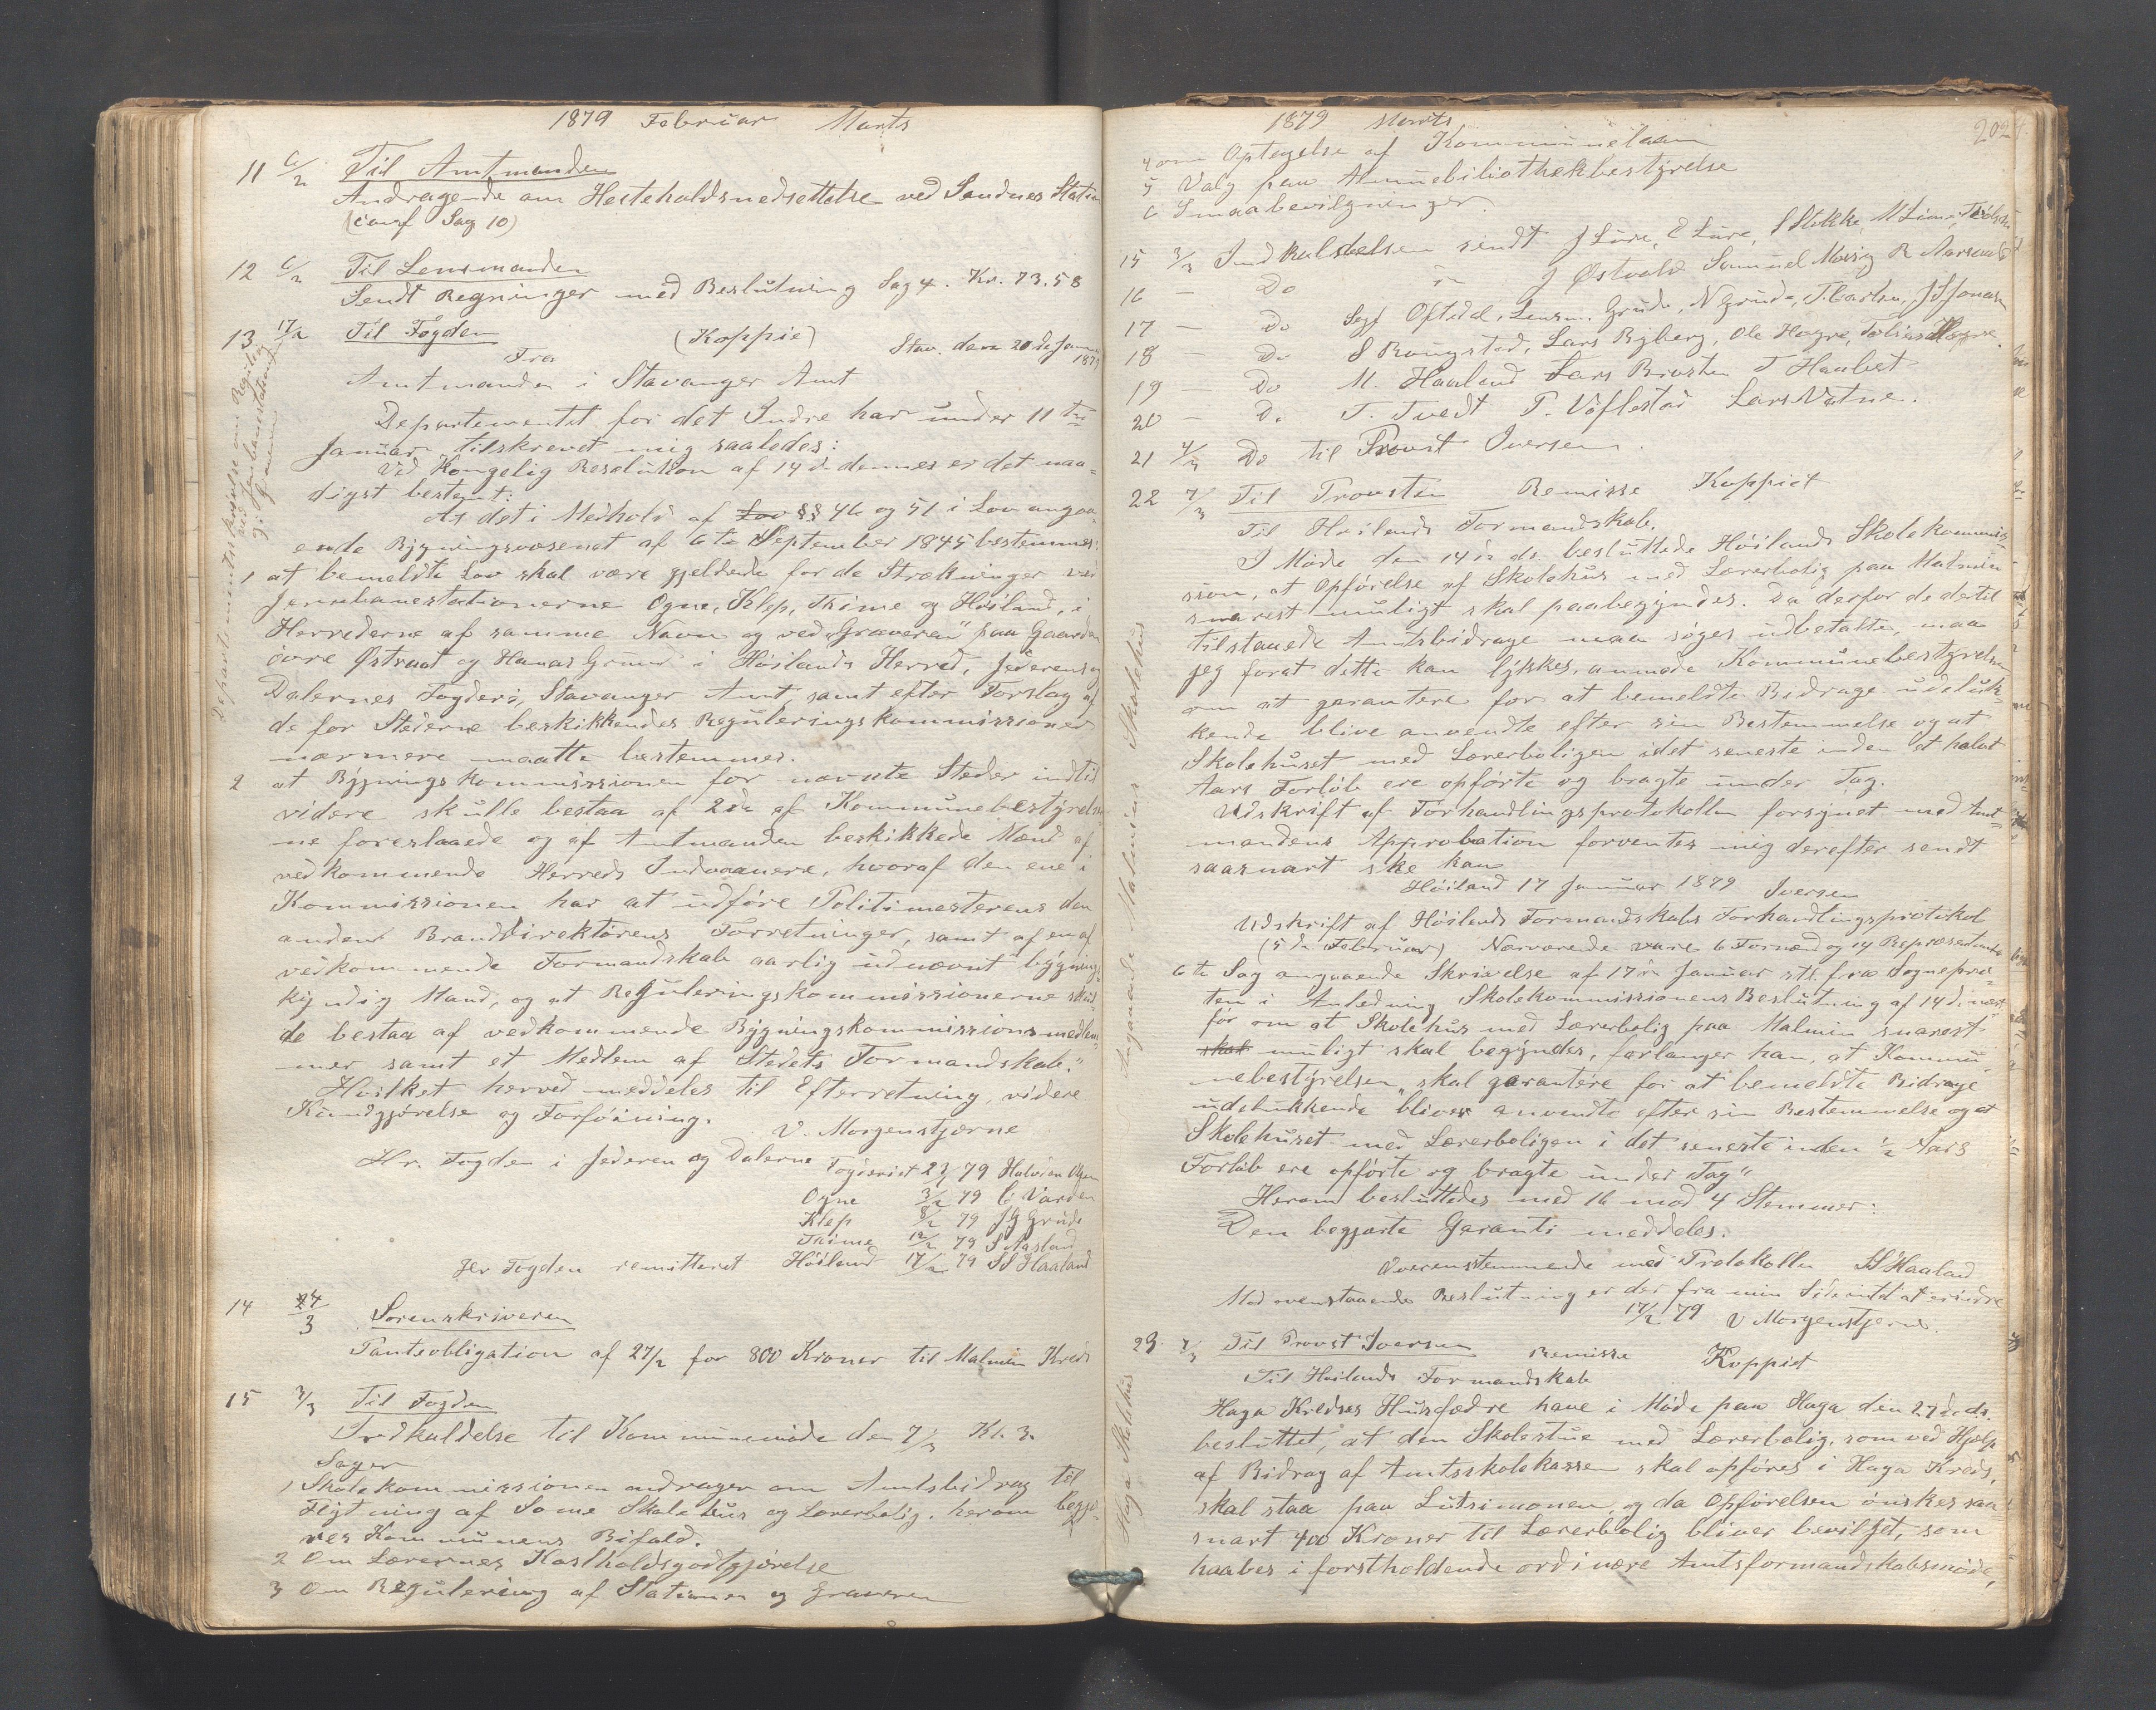 1879 Februar Marts
11 6/2 Til Amtmanden
Andragende om Hesteholdsnedsettelse ved Sandnes Station
(conf Sag 10)
12 6/2 Til Lensmanden
Sendt Regninger med Beslutning Sag 4. Kr. 73.58
13 17/2 Til Fogden (Koppie)
Fra Stav. den 20de Januar 1879
Amtmanden i Stavanger Amt
Departementet for det Indre har under 11te
Januar tilskrevet mig saaledes:
Ved Kongelig Resolution af 14 d. dennes er det naa-
digst bestemt:
At det i Medhold af Lov §§ 46 og 51 i Lov angaa-
ende Bygningsvæsenet af 6te September 1845 bestemmes:
1 at bemeldte Lov skal være gjeldende for de Strækninger ved
Jernbanestationerne Ogne, Klep, Thime og Höiland, i
Herrederne af samme Navn og ved "Graveren" paa Gaarden
övre Østraat og Hanas Grund i Höilands Herred, Jederens og
Dalernes Fogderi, Stavanger Amt, samt efter Forslag af
de for Stederne beskikkendes Reguleringskommissioner
nærmere maatte bestemmes.
2 at Bygningskommissionen for nævnte Steder indtil
videre skulle bestaa af 2de af Kommunebestyrelser-
ne foreslaaede og af Amtmanden beskikkede Mænd af
vedkommende Herreds Indvaanere, hvoraf den ene i
Kommissionen har at udföre Politimesterens den
anden Branddirektörens Forretninger, samt af en af
vedkommende Formandskab aarlig udnævnt bygnings-
kyndig Mand, og at Reguleringskommissionerne skul-
de bestaa af vedkommende Bygningskommissionsmedlem-
mer samt et Medlem af Stedets Formandskab."
Hvilket herved meddeles til Efterretning, videre
Kundgjörelse og Forföining.
V. Morgenstjerne
Hr. Fogden i Jederen og Dalerne
Ogne 3/2 79 C Varden
Klep 8/2 79 J G Grude
Thime 12/2 79 S Aasland
Hr Fogden remitteret Höiland 17/2 79 S S Haaland
14 24/3 Sorenskriveren
Panteobligation af 27/2 for 800 Kroner til Malmin Kreds
15 3/3 Til Fogden
Indkaldelse til Kommunemöde den 7/3 Kl. 3.
Sager
1 Skolekommissionen andrager om Amtsbidrag til
af Some Skolehus og Lærerbolig. herom begjæ-
res Kommunens Bifald.
2 Om Lærernes Kostholdsgodtgjörelse
3 Om Regulering af Stationen og Graveren
1879 Marts 202
4 om Optagelse af Kommunelaan
5 Valg paa Almuebibliothekbestyrelse
6 Smaabevilgninger.
15 3/3 Indkaldelsen sendt J Lure, E Lure, S Stokke, M Lima,
16 – Do J Østvold Samuel R Aarsvold
17 – Do Oftedal, Lensm. Grude, N Grude, T. Carlsen, J J Jonasen
18 – Do S Rougstad, Lars Ryberg, Ole Hogre, Tobias Hogre.
19 – Do M. Haaland Lars Brosten T Haabet
20 – Do T. Tvedt P. Lars Vatne.
21 4/3 Do til Provst Iversen.
22 7/3 Til Provsten Remisse Koppiet
Til Höilands Formandskab.
I Möde den 14de ds. besluttede Höilands Skolekommis-
sion, at Opförelse af Skolehus med Lærerbolig paa Malmin
snarest muligt skal paabegyndes. Da derfor de dertil
tilstaaede Amtsbidrage maa söges udbetalte, maa
jeg forat dette kan lykkes, anmode Kommunebestyrelsen
om at garantere for at bemeldte Bidrage udeluk-
kende blive anvendte efter sin Bestemmelse og at
Skolehuset med Lærerboligen idet seneste inden et halvt
Aars Forlöb ere opförte og bragte under Tag.
Udskrift af Forhandlingsprotokollen forsynet med Amt-
mandens Approbation forventes mig derefter sendt
saasnart ske kan
Höiland 17 Januar 1879 Iversen
Udskrift af Höilands Formandskabs Forhandlingsprotokol
(5 de Februar) Nærværende vare 6 Formænd og 14 Repræsentanter
6te Sag angaaende Skrivelse af 17de Januar stl. fra Sognepræ-
ten i Anledning Skolekommissionens Beslutning af 14 d. næst
för om at Skolehus med Lærerbolig paa Malmin snarest
skal muligt skal begyndes, forlanger han, at Kommu-
nebestyrelsen "skal garantere for at bemeldte Bidrage
udelukkende bliver anvendte efter sin Bestemmelse og at
Skolehuset med Lærerboligen i det seneste inden 1/2 Aars
Forlöb ere opförte og bragte under Tag"
Herom besluttedes med 16 mod 4 Stemmer:
Den begjærte Garanti meddeles.
Overensstemmende med Protokollen S S Haaland
Mod ovenstaaende Beslutning er der fra min Side intet at erindre
17/2 79 V Morgenstjerne.
23. 7/3 Til Provst Iversen Remisse Koppiet
Til Höilands Formandskab
Haga Kredses Husfædre have i Möde paa Haga den 27de ds.
besluttet, at den Skolestue med Lærerbolig, som ved Hjælp
af Bidrag af Amtsskolekassen skal opföres i Haga Kreds,
skal staa paa Lutsimonen, og da Opförelsen önskes saa
snart 400 Kroner til Lærerbolig bliver bevilget, som
haabes i forstholdende ordinære Amtsformandskabsmöde,
Departementsskrivelse om Regulering
ved Jernbanestationer
og Graveren
Angaaende Malmins Skolehus
Haga Skolehus